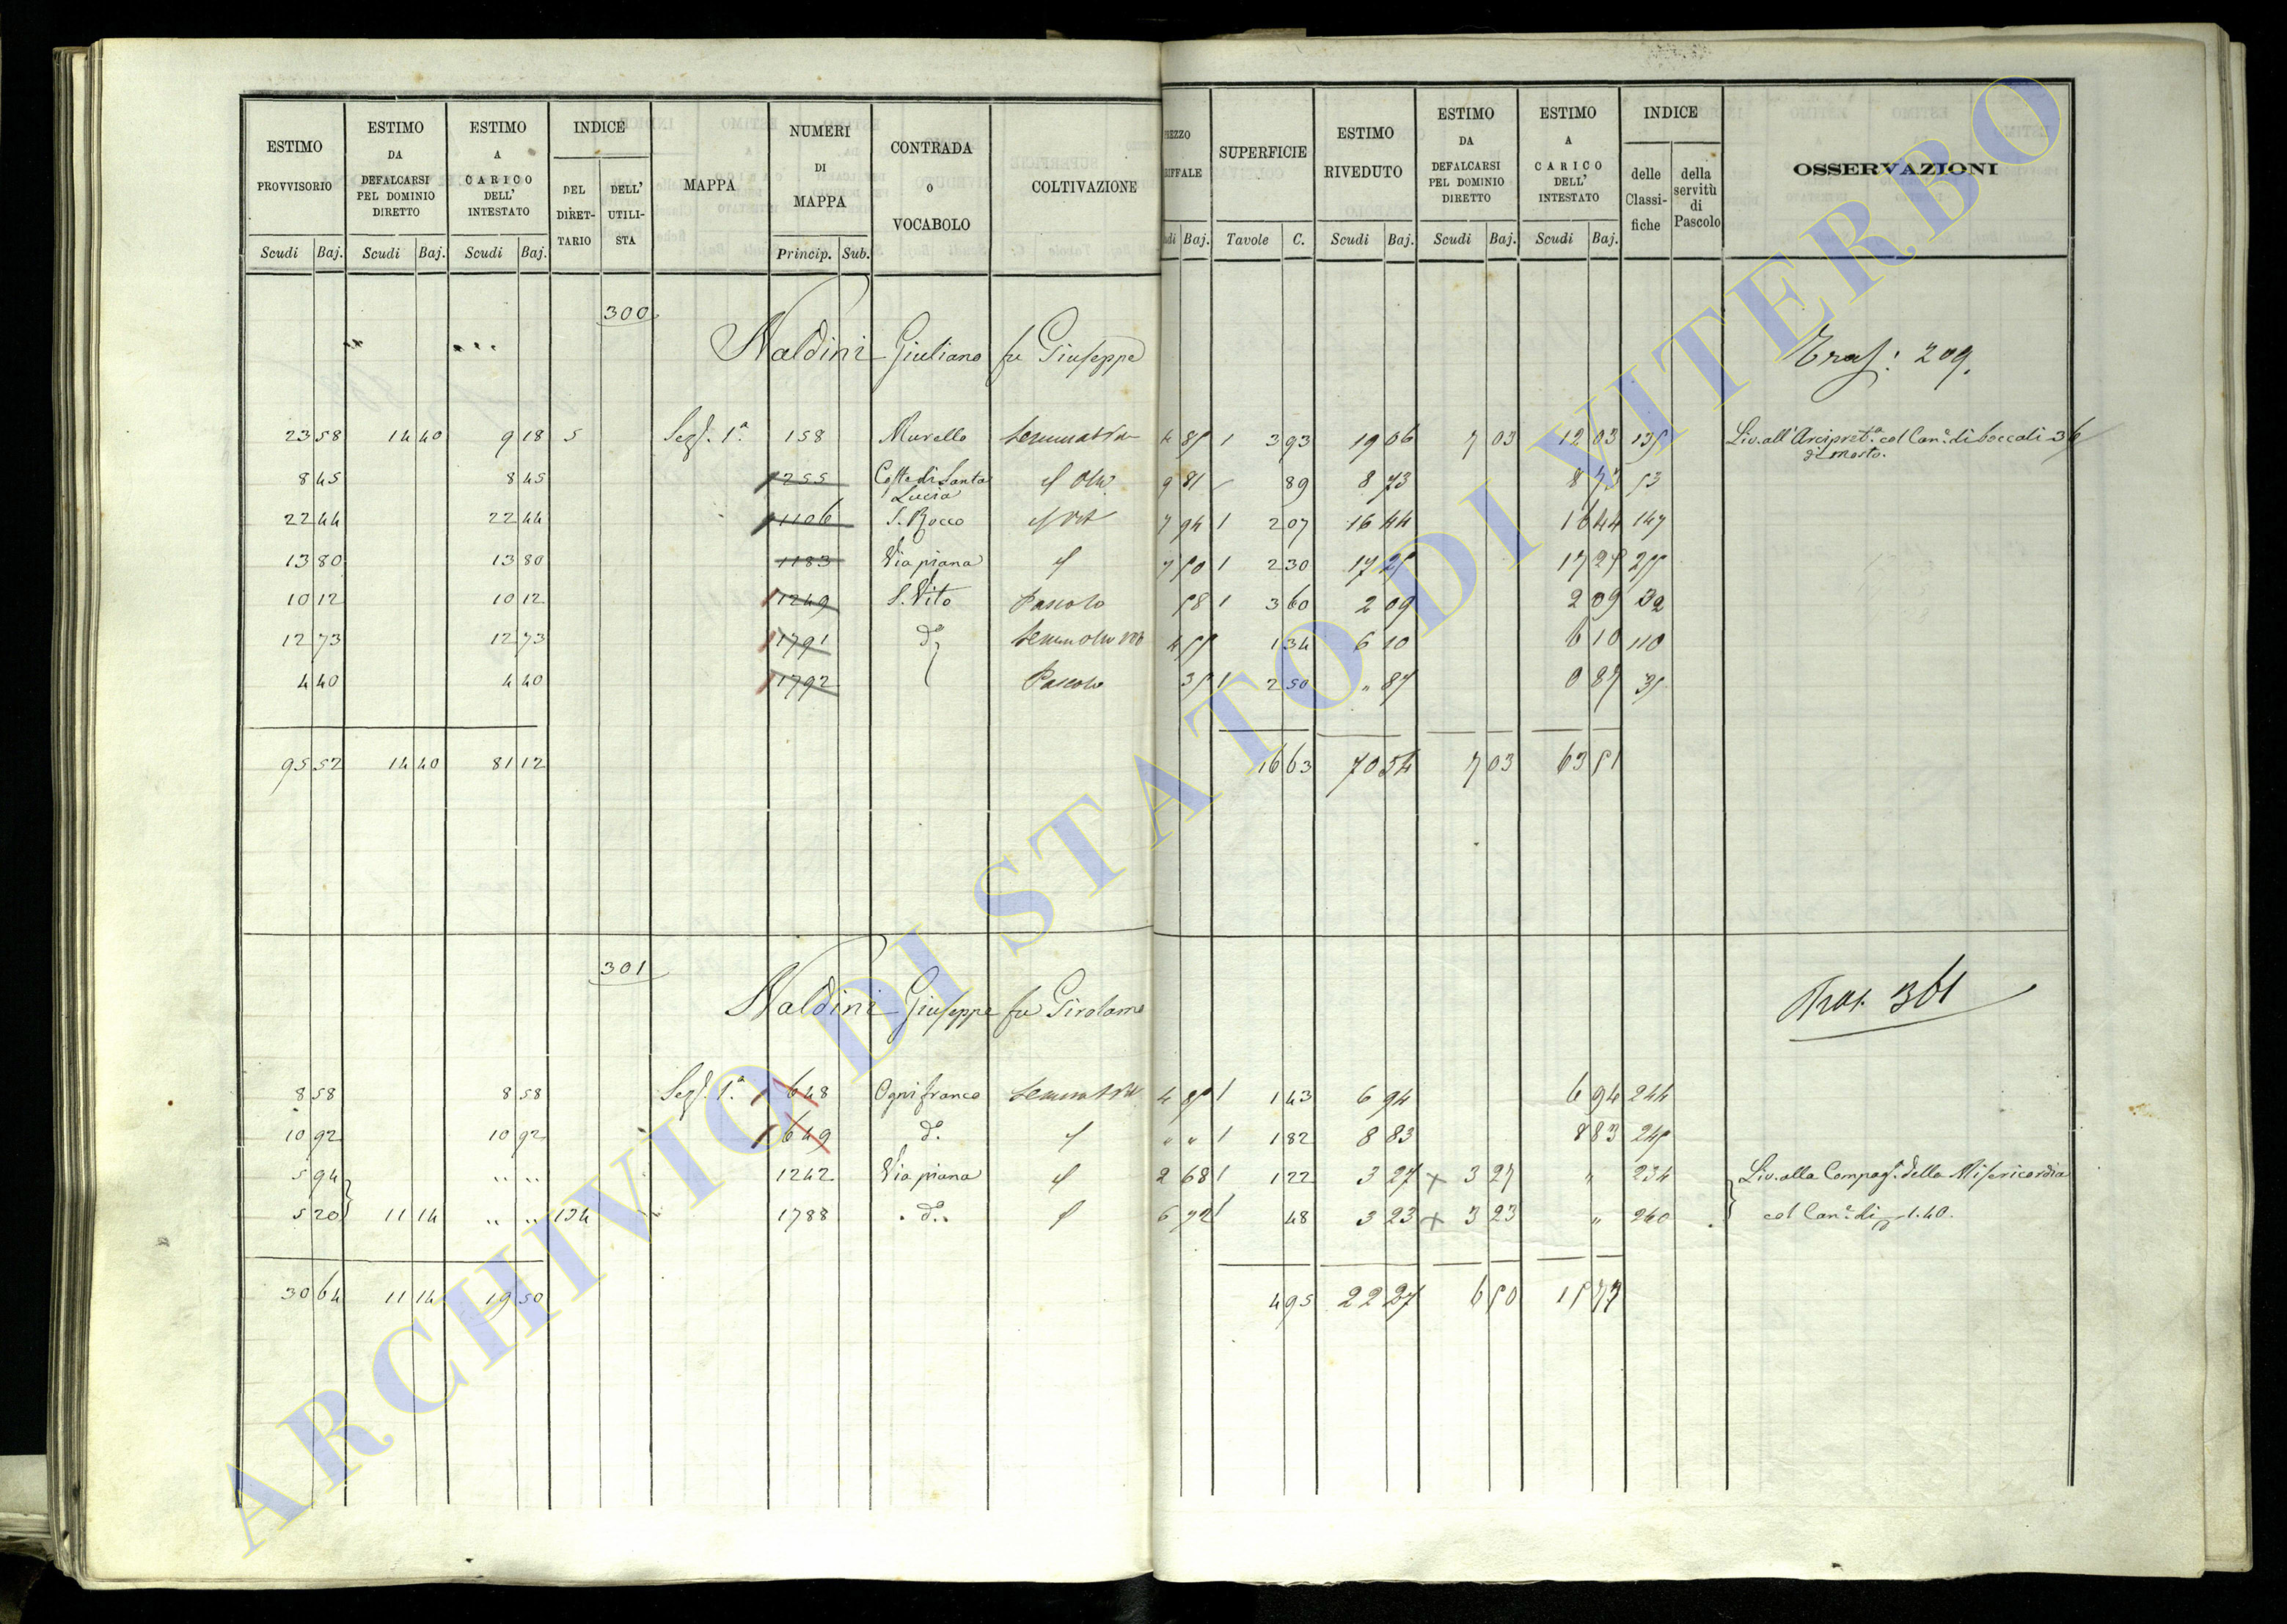 ESTIMO PROVVISORIO Scudi Baj. ESTIMO DA DEFALCARSI PEL DOMINIO DIRETTO Scudi Baj. ESTIMO A CARICO DELL' INTESTATO Scudi Baj. INDICE DEL DIRET- TARIO DELL' UTILI- STA MAPPA NUMERI DI MAPPA Princip. Sub. CONTRADA O VOCABOLO COLTIVAZIONE
Baj. SUPERFICIE Tavole C. ESTIMO RIVEDUTO Scudi Baj. ESTIMO DA DEFALCARSI PEL DOMINIO DIRETTO Scudi Baj. ESTIMO A CARICO DELL' INTESTATO Scudi Baj. INDICE delle Classi- fiche della servitù di Pascolo OSSERVAZIONI
300
Naldini Giuliano fu Giuseppe
Trasf: 209.
23 58 14 40 9 18 5 Sez. 1ª 158 Murello 4 85 1 3 93 19 06 7 03 12 03 135 Liv. all'Arcipret.ª col Can.e di boccali 36
di mosto.
8 45 8 45 255 Coste di Santa 9 81 89 8 73 8 73 53
Lucia
22 44 22 44 1106 S. Rocco 7 94 1 2 07 16 44 16 44 147
13 80 13 80 1183 Via piana 7 50 1 2 30 17 25 17 25 255
10 12 10 12 1249 S. Vito Pascolo 58 1 3 60 2 09 2 09 32
12 73 12 73 1791 d.º 4 55 1 34 6 10 6 10 110
4 40 4 40 1792 Pascolo 35 1 2 50 " 87 0 87 35
95 52 14 40 81 12 16 63 70 54 7 03 63 51
301
Naldini Giuseppe fu Girolamo
Tras. 361
8 58 8 58 Sez. 1ª 648 Ognifranco 4 85 1 1 43 6 94 6 94 244
10 92 10 92 649 d.º " " 1 1 82 8 83 8 83 245
5 94 " " 1242 Via piana 2 68 1 1 22 3 27 × 3 27 " 234 Liv. alla Compag.ª della Misericordia
5 20 11 14 " " 134 1788 d.º 6 72 1 48 3 23 × 3 23 " 260 col Can.e di 1.40.
30 64 11 14 19 50 4 95 22 27 6 50 15 77
ARCHIVIO DI STATO DI VITERBO